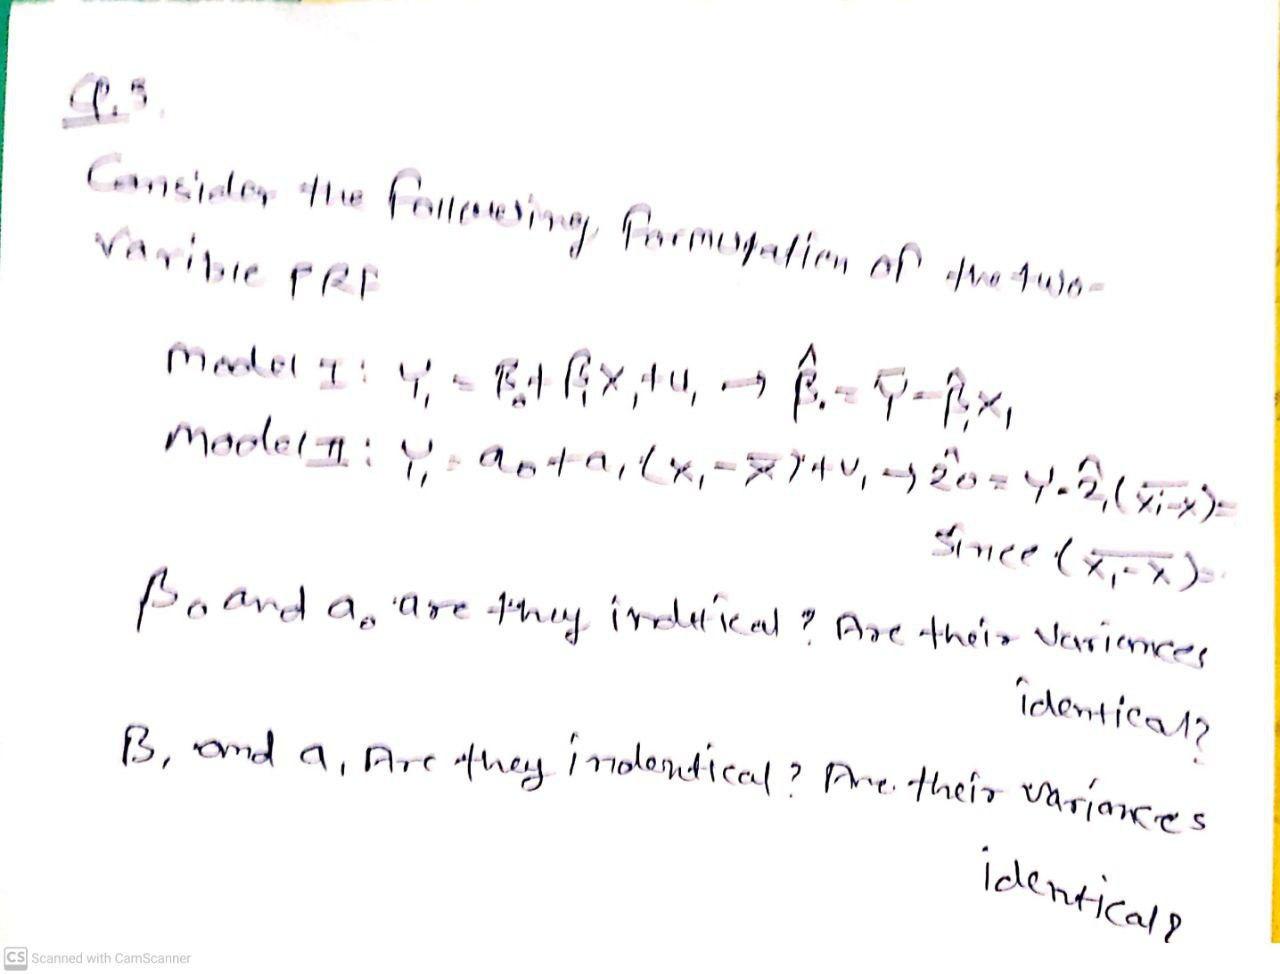 Q.3.
Consider the following formulation of the two-
varible PRF
Model I: Yᵢ = β₀ + β₁Xᵢ + uᵢ → β̂₀ = Ȳ - β̂₁Xᵢ
Model II: Yᵢ = a₀ + a₁(xᵢ - x̄) + uᵢ → 2̂₀ = Y - 2̂₁(x̄ᵢ-x) =
Since (xᵢ - x̄) =
β₀ and a₀ are they indetical? Are their variances
identical?
B₁ and a₁ Are they indentical? Are their variances
identical?
CS Scanned with CamScanner